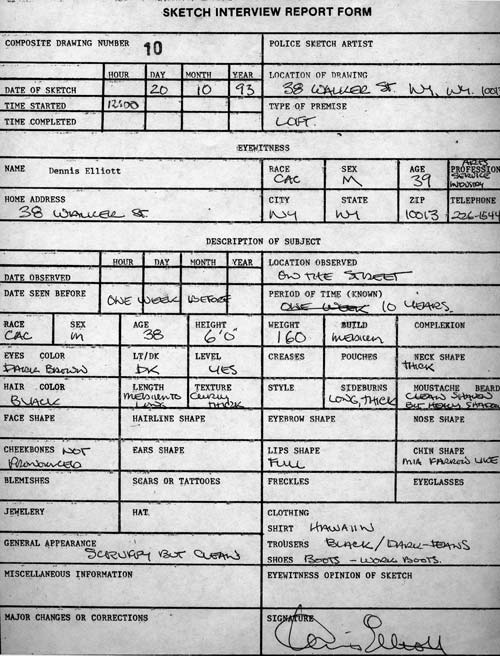 SKETCH INTERVIEW REPORT FORM
COMPOSITE DRAWING NUMBER 10
POLICE SKETCH ARTIST
HOUR DAY MONTH YEAR
DATE OF SKETCH 20 10 93
TIME STARTED 12:00
TIME COMPLETED
LOCATION OF DRAWING
38 WALKER ST. NY, NY. 10013
TYPE OF PREMISE
LOFT.
EYEWITNESS
NAME Dennis Elliott
RACE CAC
SEX M
AGE 39
PROFESSION ARTS SERVICE INDUSTRY
HOME ADDRESS
38 WALKER ST.
CITY NY
STATE NY
ZIP 10013
TELEPHONE 226-1544
DESCRIPTION OF SUBJECT
HOUR DAY MONTH YEAR
DATE OBSERVED
LOCATION OBSERVED
ON THE STREET
DATE SEEN BEFORE ONE WEEK BEFORE
PERIOD OF TIME (KNOWN)
ONE WEEK 10 YEARS.
RACE CAC
SEX M
AGE 38
HEIGHT 6'0"
WEIGHT 160
BUILD MEDIUM
COMPLEXION
EYES COLOR DARK BROWN
LT/DK DK
LEVEL YES
CREASES
POUCHES
NECK SHAPE THICK
HAIR COLOR BLACK
LENGTH MEDIUM TO LONG
TEXTURE CURLY THICK
STYLE
SIDEBURNS LONG, THICK
MOUSTACHE BEARD CLEAN SHAVEN BUT HEAVY SHADE
FACE SHAPE
HAIRLINE SHAPE
EYEBROW SHAPE
NOSE SHAPE
CHEEKBONES NOT PRONOUNCED
EARS SHAPE
LIPS SHAPE FULL
CHIN SHAPE MIA FARROW LIKE
BLEMISHES
SCARS OR TATTOOES
FRECKLES
EYEGLASSES
JEWELERY
HAT
CLOTHING
SHIRT HAWAIIN
TROUSERS BLACK/DARK-JEANS
SHOES BOOTS - WORK BOOTS.
GENERAL APPEARANCE
SCRUFFY BUT CLEAN
MISCELLANEOUS INFORMATION
EYEWITNESS OPINION OF SKETCH
MAJOR CHANGES OR CORRECTIONS
SIGNATURE
Dennis Elliott